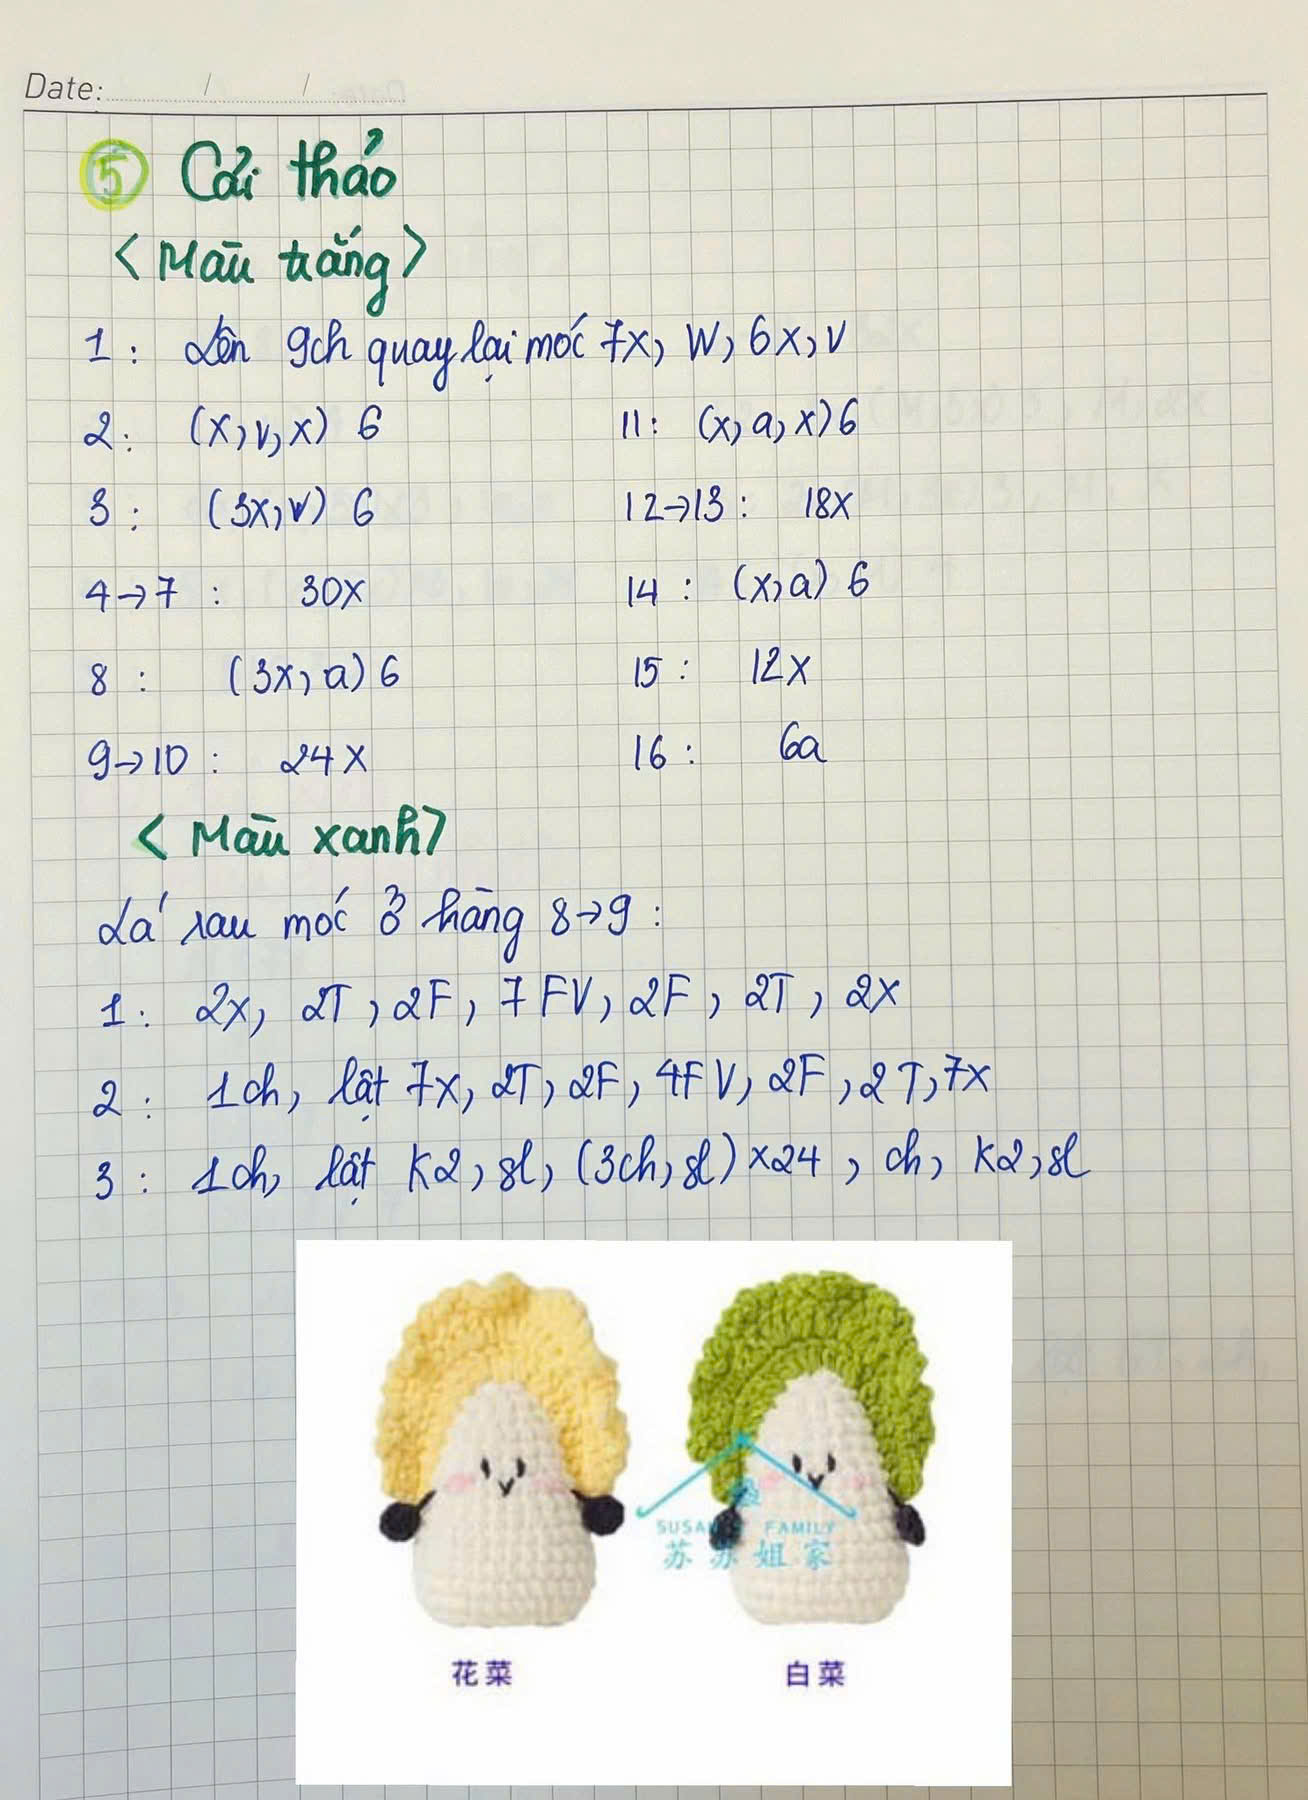 Date: / /
5 Cải thảo
< Màu trắng >
1 : Lên 9ch quay lại móc 7x, W, 6x, V
2 : (x, v, x) 6
3 : (3x, v) 6
4→7 : 30x
8 : (3x, a) 6
9→10 : 24x
11 : (x, a, x) 6
12→13 : 18x
14 : (x, a) 6
15 : 12x
16 : 6a
< Màu xanh >
Lá rau móc ở hàng 8→9 :
1 : 2x, 2T, 2F, 7FV, 2F, 2T, 2x
2 : 1ch, lật 7x, 2T, 2F, 4FV, 2F, 2T, 7x
3 : 1ch, lật K2, sl, (3ch, sl) x24, ch, K2, sl
SUSAN'S FAMILY
苏苏姐家
花菜
白菜